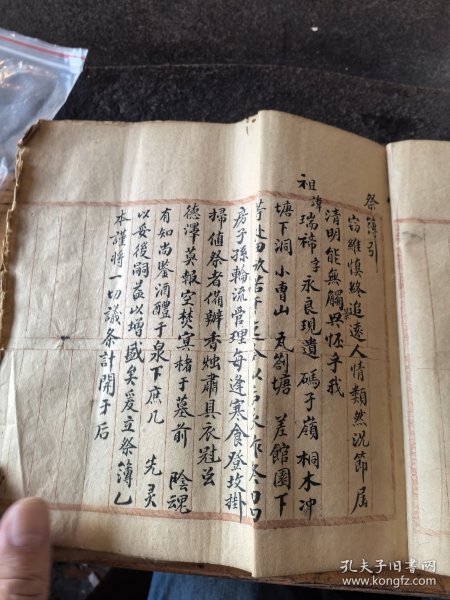 祭簿引
窃維慎終追遠人情類然況節届
清明能無觸景興怀乎我
祖諱瑞禘字永良現遺碼子嶺桐木冲
塘下洞小曹山瓦劄塘差館園下
房子孫輪流管理每逢寒食登坟掛
掃值祭者備辦香烛肅具衣冠並
德澤冀報空焚冥楮于墓前陰魂
有知尚鉴酒醴于泉下庶几先灵
以妥後嗣益以增盛矣爰立祭簿乙
本謹將一切議条計開于后
孔夫子旧书网
www.kongfz.com